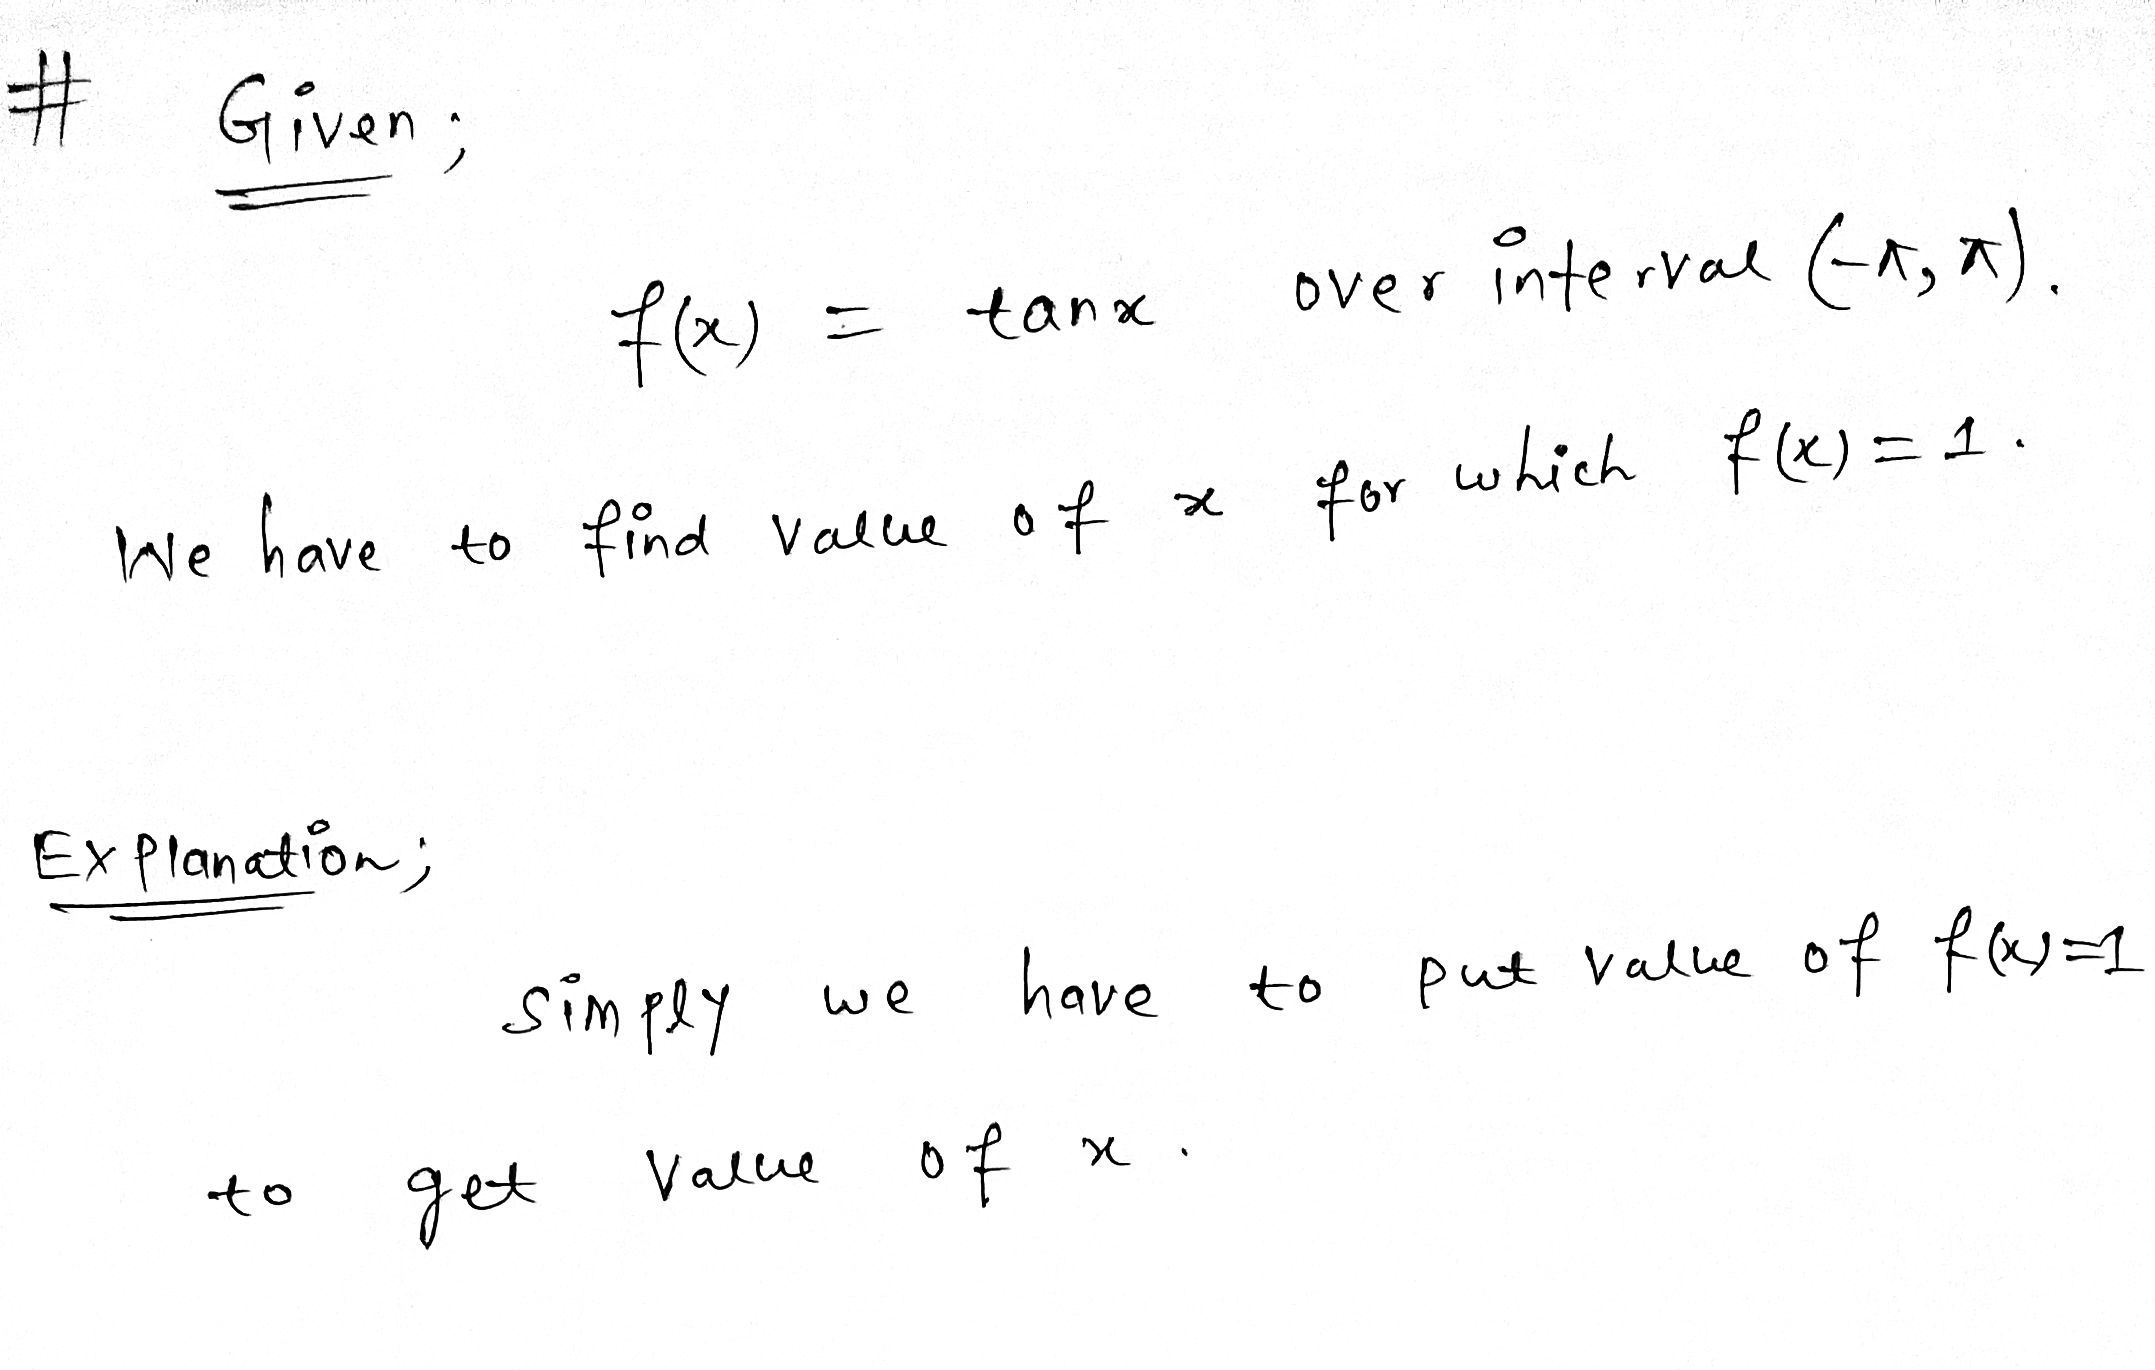 # Given;
f(x) = tanx over interval (-π, π).
We have to find value of x for which f(x) = 1.
Explanation;
simply we have to put value of f(x)=1
to get value of x.